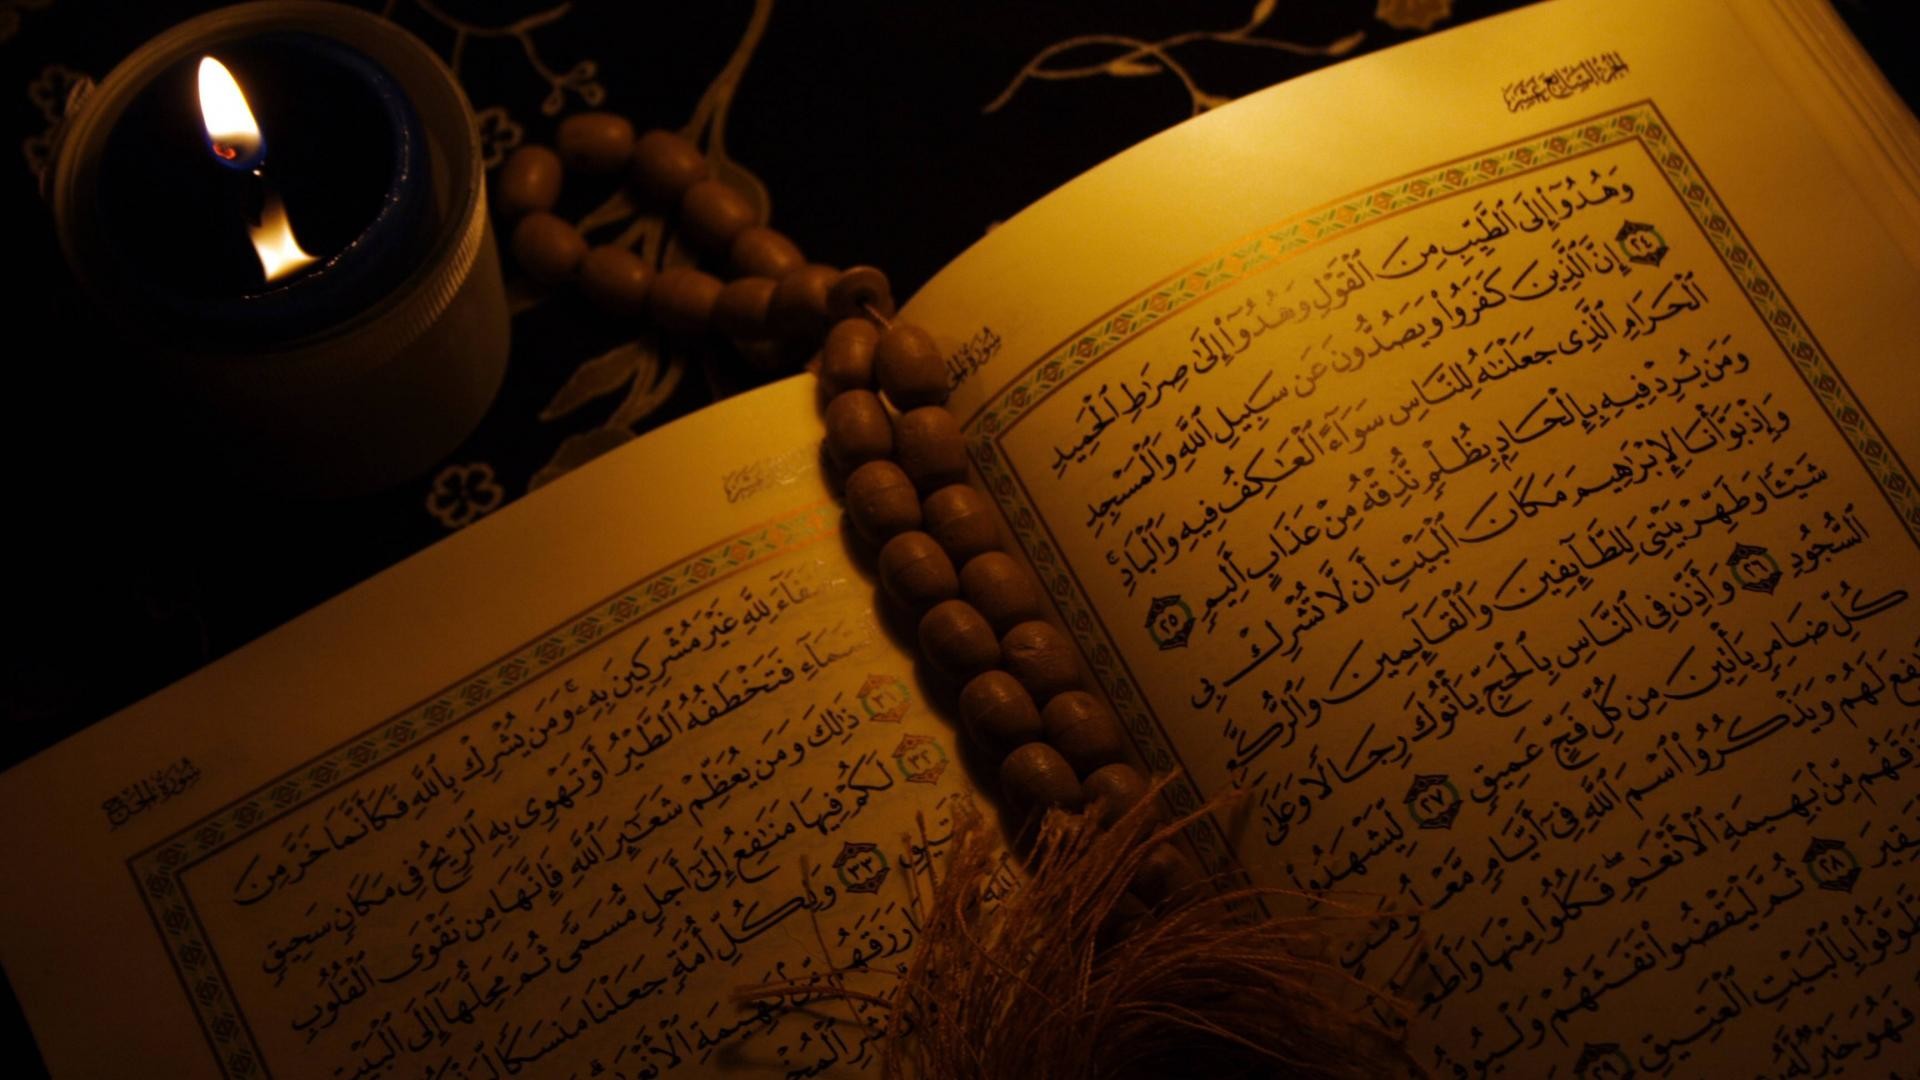 الجزء السابع عشر
سورة الحج
وَهُدُوٓا۟ إِلَى ٱلطَّيِّبِ مِنَ ٱلْقَوْلِ وَهُدُوٓا۟ إِلَىٰ صِرَٰطِ ٱلْحَمِيدِ
٢٤ إِنَّ ٱلَّذِينَ كَفَرُوا۟ وَيَصُدُّونَ عَن سَبِيلِ ٱللَّهِ وَٱلْمَسْجِدِ
ٱلْحَرَامِ ٱلَّذِى جَعَلْنَٰهُ لِلنَّاسِ سَوَآءً ٱلْعَٰكِفُ فِيهِ وَٱلْبَادِ ۚ
وَمَن يُرِدْ فِيهِ بِإِلْحَادٍۭ بِظُلْمٍ نُّذِقْهُ مِنْ عَذَابٍ أَلِيمٍ ٢٥
وَإِذْ بَوَّأْنَا لِإِبْرَٰهِيمَ مَكَانَ ٱلْبَيْتِ أَن لَّا تُشْرِكْ بِى
شَيْـًٔا وَطَهِّرْ بَيْتِىَ لِلطَّآئِفِينَ وَٱلْقَآئِمِينَ وَٱلرُّكَّعِ
ٱلسُّجُودِ ٢٦ وَأَذِّن فِى ٱلنَّاسِ بِٱلْحَجِّ يَأْتُوكَ رِجَالًا وَعَلَىٰ
كُلِّ ضَامِرٍ يَأْتِينَ مِن كُلِّ فَجٍّ عَمِيقٍ ٢٧ لِّيَشْهَدُوا۟
لَهُمْ وَيَذْكُرُوا۟ ٱسْمَ ٱللَّهِ فِىٓ أَيَّامٍ مَّعْلُومَٰتٍ
مِّنۢ بَهِيمَةِ ٱلْأَنْعَٰمِ ۖ فَكُلُوا۟ مِنْهَا وَأَطْعِمُوا۟
٢٨ ثُمَّ لْيَقْضُوا۟ تَفَثَهُمْ وَلْيُوفُوا۟
بِٱلْبَيْتِ ٱلْعَتِيقِ ٢٩
خَيْرٌ لَّهُۥ
سورة الحج
لِلَّهِ غَيْرَ مُشْرِكِينَ بِهِۦ ۚ وَمَن يُشْرِكْ بِٱللَّهِ فَكَأَنَّمَا خَرَّ مِنَ
فَتَخْطَفُهُ ٱلطَّيْرُ أَوْ تَهْوِى بِهِ ٱلرِّيحُ فِى مَكَانٍ سَحِيقٍ
٣١ ذَٰلِكَ وَمَن يُعَظِّمْ شَعَٰٓئِرَ ٱللَّهِ فَإِنَّهَا مِن تَقْوَى ٱلْقُلُوبِ
٣٢ لَكُمْ فِيهَا مَنَٰفِعُ إِلَىٰٓ أَجَلٍ مُّسَمًّى ثُمَّ مَحِلُّهَآ إِلَى ٱلْبَيْتِ
٣٣ وَلِكُلِّ أُمَّةٍ جَعَلْنَا مَنسَكًا
رَزَقَهُم مِّنۢ بَهِيمَةِ ٱلْأَنْعَٰمِ